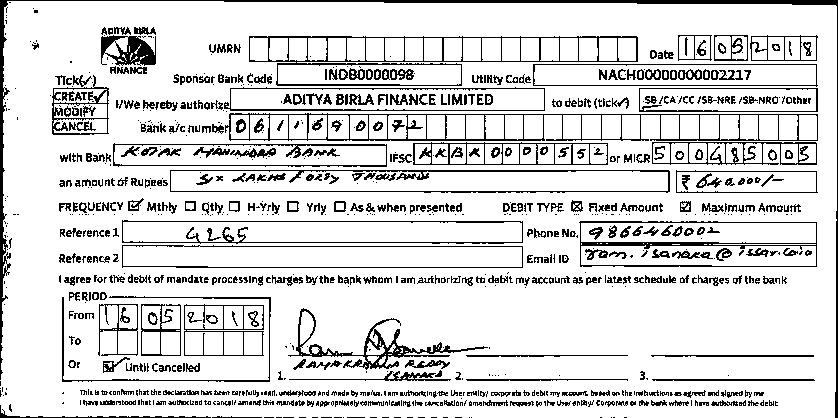 ADITYA BIRLA
FINANCE
UMRN
Date 16052018
Tick(✓)
Sponsor Bank Code INDB0000098 Utility Code NACH00000000002217
CREATE ✓
MODIFY
CANCEL
I/We hereby authorize ADITYA BIRLA FINANCE LIMITED to debit (tick✓) SB/CA/CC/SB-NRE/SB-NRO/Other
Bank a/c number 0611690072
with Bank KOTAK MAHINDRA BANK IFSC KKBK0000552 or MICR 500485003
an amount of Rupees Six LAKHS FORTY THOUSAND ₹ 640,000/-
FREQUENCY ☑ Mthly ☐ Qtly ☐ H-Yrly ☐ Yrly ☐ As & when presented DEBIT TYPE ☒ Fixed Amount ☑ Maximum Amount
Reference 1 4265 Phone No. 9866460002
Reference 2 Email ID ram.isanaka@
I agree for the debit of mandate processing charges by the bank whom I am authorizing to debit my account as per latest schedule of charges of the bank
PERIOD
From 16052018
To
Or ☑ Until Cancelled
RAMAKRISHNA REDDY
ISANAKA
1. 2. 3.
This is to confirm that the declaration has been carefully read, understood and made by me/us. I am authorizing the User entity/ corporate to debit my account, based on the instructions as agreed and signed by me
I have understood that I am authorized to cancel/ amend this mandate by appropriately communicating the cancellation/ amendment request to the User entity/ Corporate or the bank where I have authorized the debit